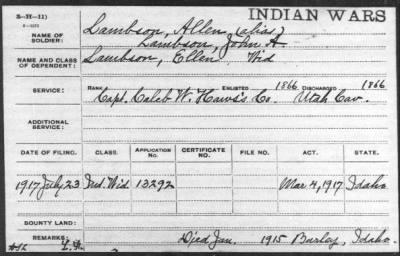 S—H—11) INDIAN WARS
NAME OF SOLDIER: Lambson, Allen (alias)
Lambson, John A
NAME AND CLASS OF DEPENDENT: Lambson, Ellen Wid
SERVICE: RANK ENLISTED 1866 DISCHARGED 1866
Capt. Caleb W. Haws's Co. Utah Cav.
ADDITIONAL SERVICE:
DATE OF FILING. CLASS. APPLICATION No. CERTIFICATE No. FILE NO. ACT. STATE.
1917 July 23 Ind. Wid. 13292 Mar 4, 1917 Idaho
BOUNTY LAND:
REMARKS: Died Jan. 1915 Burley, Idaho.